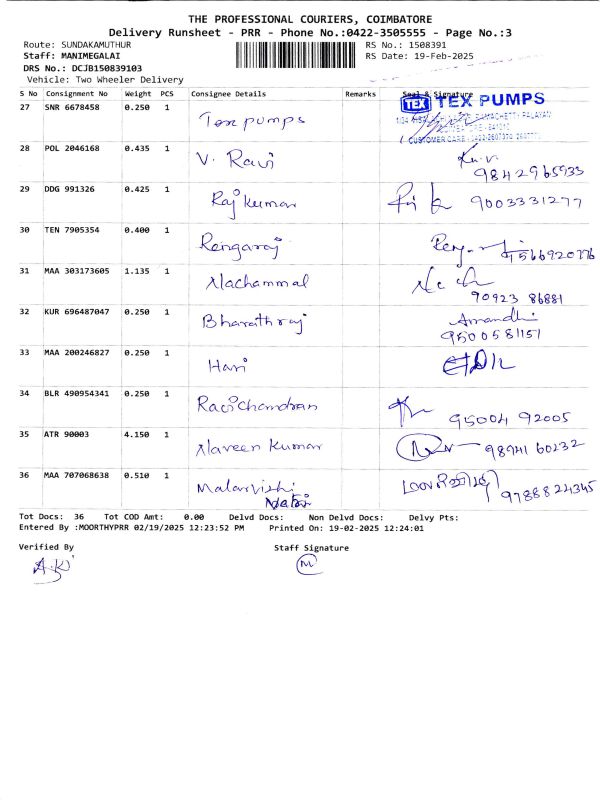 THE PROFESSIONAL COURIERS, COIMBATORE
Delivery Runsheet - PRR - Phone No.:0422-3505555 - Page No.:3
Route: SUNDAKAMUTHUR RS No.: 1508391
Staff: MANIMEGALAI RS Date: 19-Feb-2025
DRS No.: DCJB150839103
Vehicle: Two Wheeler Delivery
S No Consignment No Weight PCS Consignee Details Remarks Seal & Signature
27 SNR 6678458 0.250 1 Tex pumps TEX TEX PUMPS
CUSTOMER CARE
28 POL 2046168 0.435 1 V. Ravi
9842965933
29 DDG 991326 0.425 1 Raj kumar 9003331277
30 TEN 7905354 0.400 1 Rengaraj
31 MAA 303173605 1.135 1 Nachammal
90923 86881
32 KUR 696487047 0.250 1 Bharath raj Amandhi
9500581151
33 MAA 200246827 0.250 1 Hari
34 BLR 490954341 0.250 1 Ravichandran 95004 92005
35 ATR 90003 4.150 1 Naveen Kumar 98941 60232
36 MAA 707068638 0.510 1 Malarvizhi 9788824345
Tot Docs: 36 Tot COD Amt: 0.00 Delvd Docs: Non Delvd Docs: Delvy Pts:
Entered By :MOORTHYPRR 02/19/2025 12:23:52 PM Printed On: 19-02-2025 12:24:01
Verified By Staff Signature
M